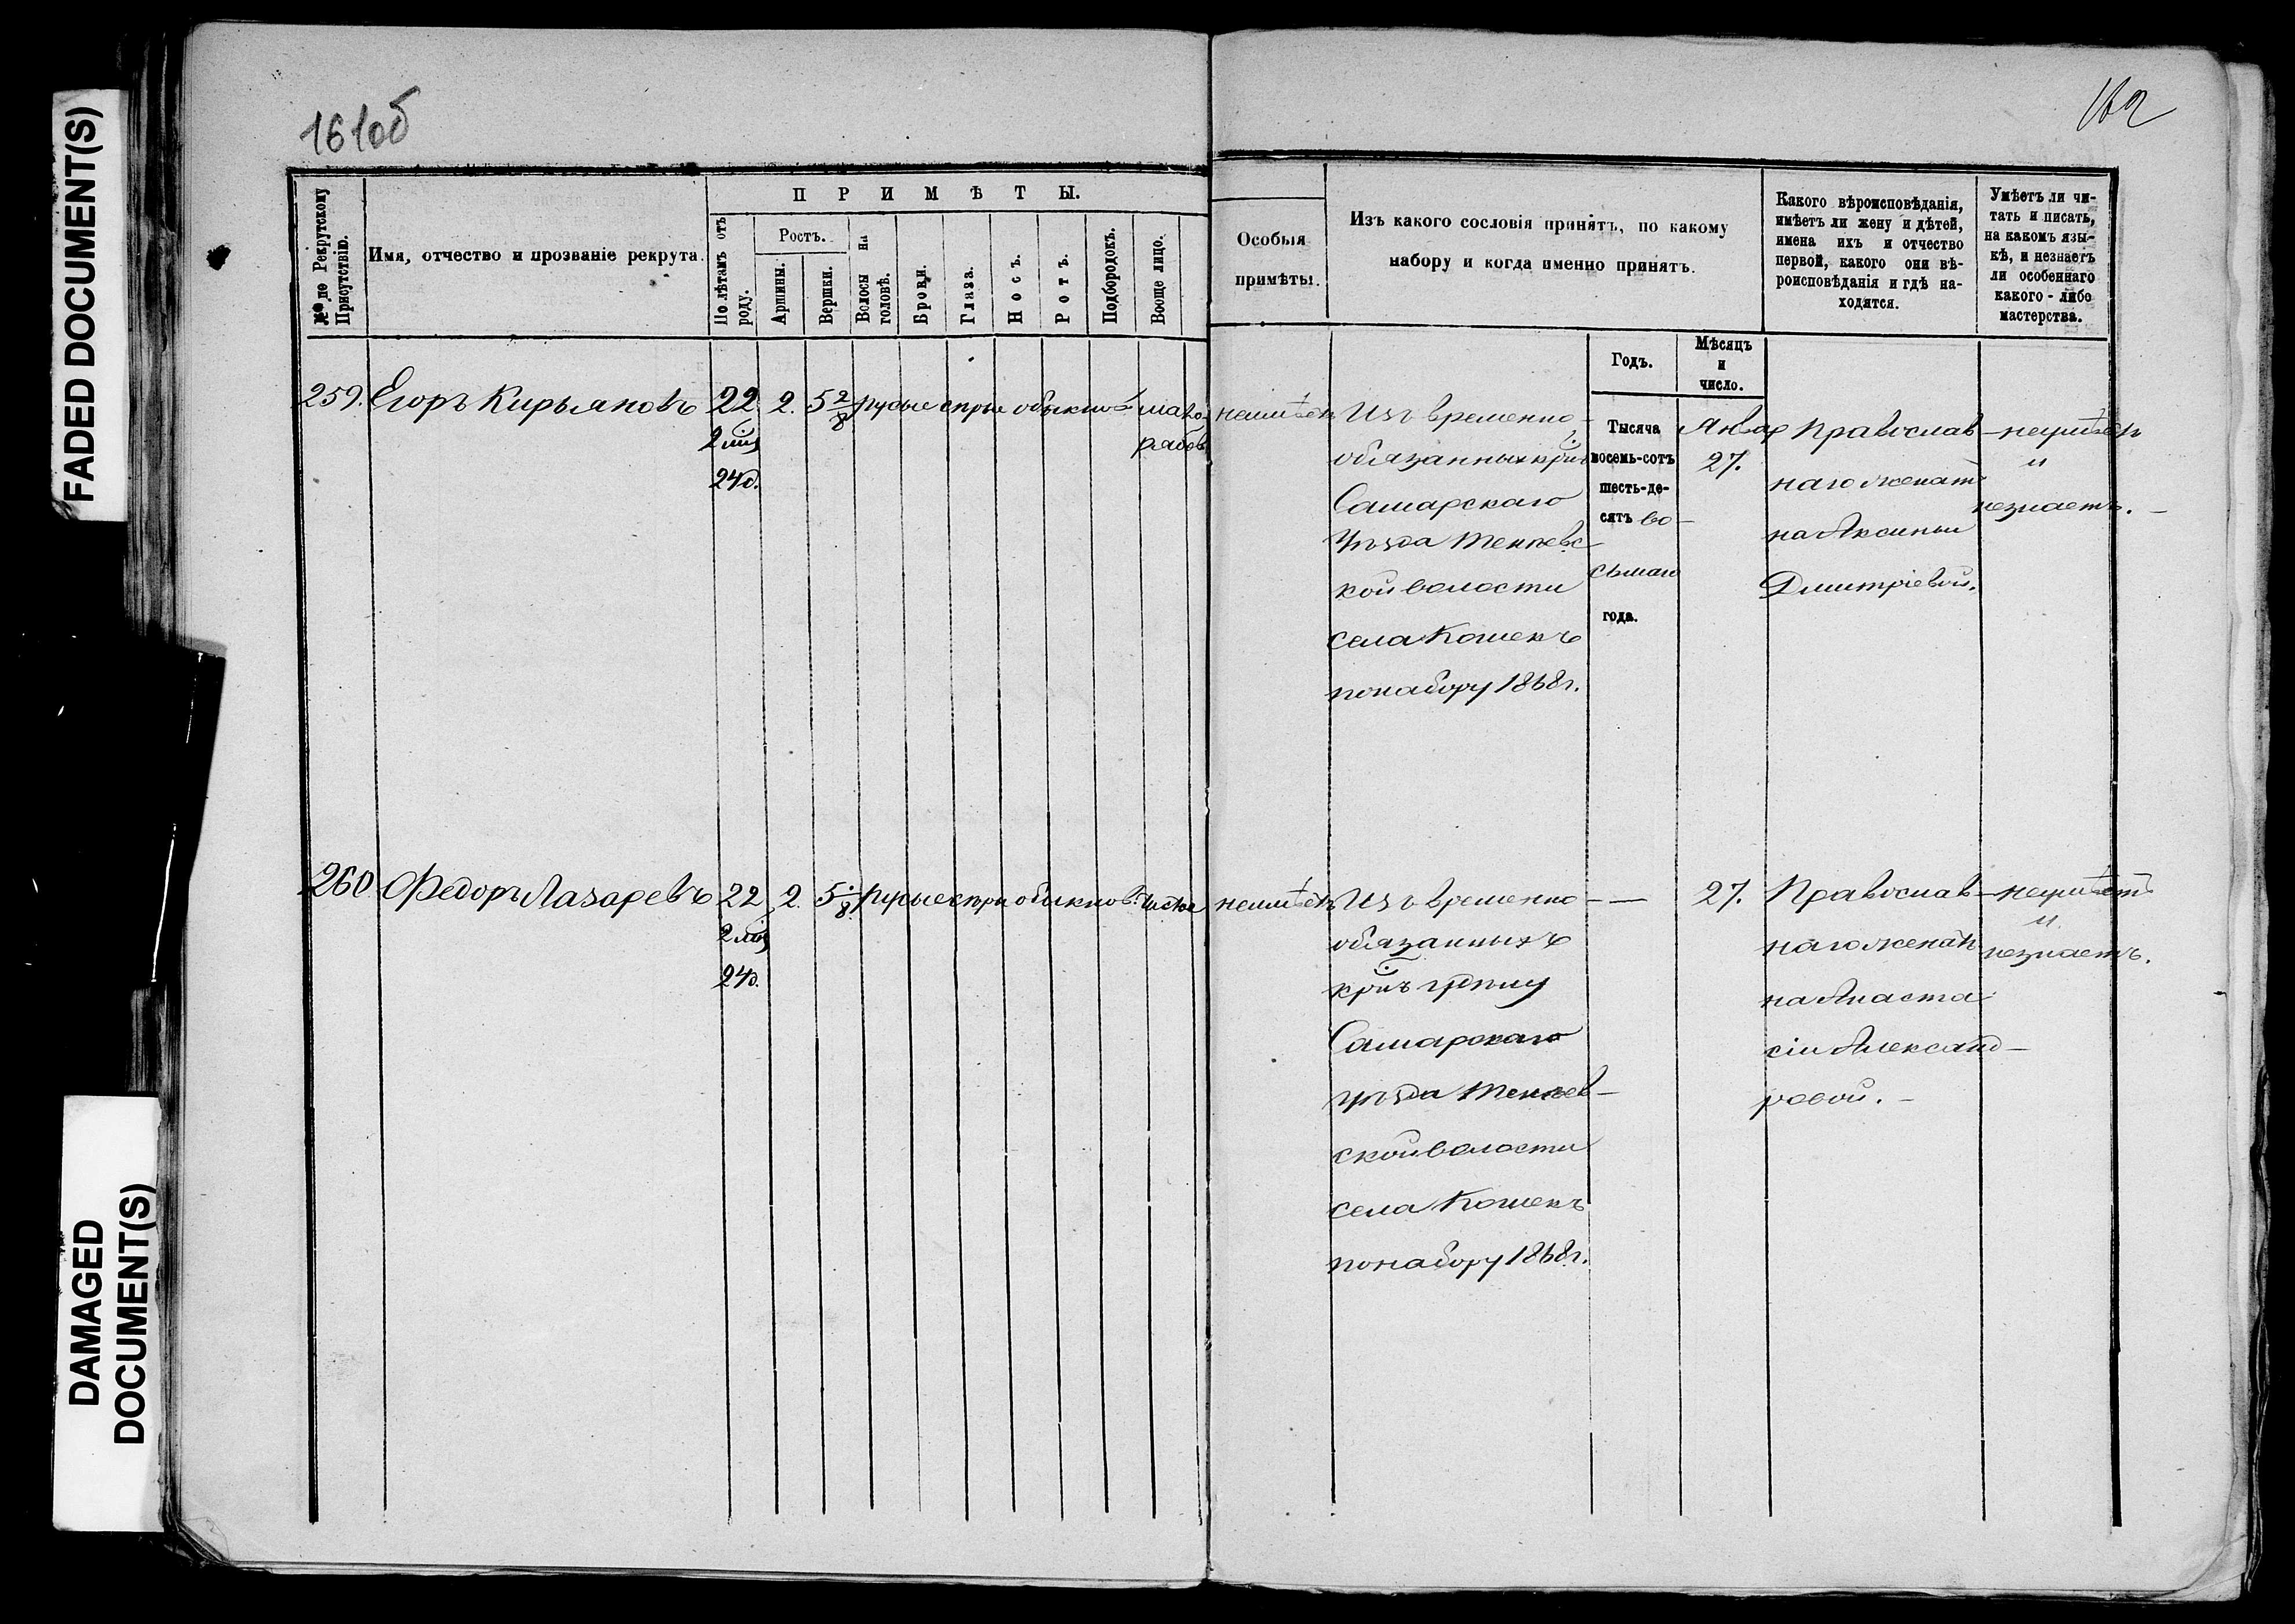 FADED DOCUMENT(S)
DAMAGED
DOCUMENT(S)
161об
162
№ по Рекрутскому
Присутствію.
Имя, отчество и прозваніе рекрута.
ПРИМѢТЫ.
По лѣтамъ отъ
роду.
Ростъ.
Аршины.
Вершки.
Волосы на
головѣ.
Брови.
Глаза.
Носъ.
Ротъ.
Подбородокъ.
Вооще лицо.
Особыя
примѣты.
Изъ какого сословія принятъ, по какому
набору и когда именно принятъ.
Какого вѣроисповѣданія,
имѣетъ ли жену и дѣтей,
имена ихъ и отчество
первой, какого они вѣ-
роисповѣданія и гдѣ на-
ходятся.
Умѣетъ ли чи-
тать и писать,
на какомъ язы-
кѣ, и незнаетъ
ли особеннаго
какого-либо
мастерства.
Годъ.
Мѣсяцъ
и
число.
259. Егоръ Кирьяновъ
22
2 мѣс
24 д.
2. 5 2/8 русые сѣрые обыкнов
мало
рябов
неимѣетъ
Изъ временно-
обязанныхъ
Самарскаго
Уѣзда Тенеевс-
кой волости
села Кошекъ
по набору 1868 г.
Тысяча
восемь-сотъ
шесть-де-
сятъ во-
сьмаго
года.
Январ
27.
Православ-
наго женатъ
на Аксиньи
Дмитріевой.
неумѣетъ
и
незнаетъ.
260 Федоръ Лазаревъ
22
2 мѣс
24 д.
2. 5 1/8 русые сѣры обыкнов. чистое
неимѣетъ
Изъ временно-
обязанныхъ
Самарскаго
уѣзда Тенеев-
ской волости
села Кошекъ
по набору 1868 г.
— 27.
Православ-
наго женатъ
на Анаста-
сіи Александ-
ровой.
неумѣетъ
и
незнаетъ.